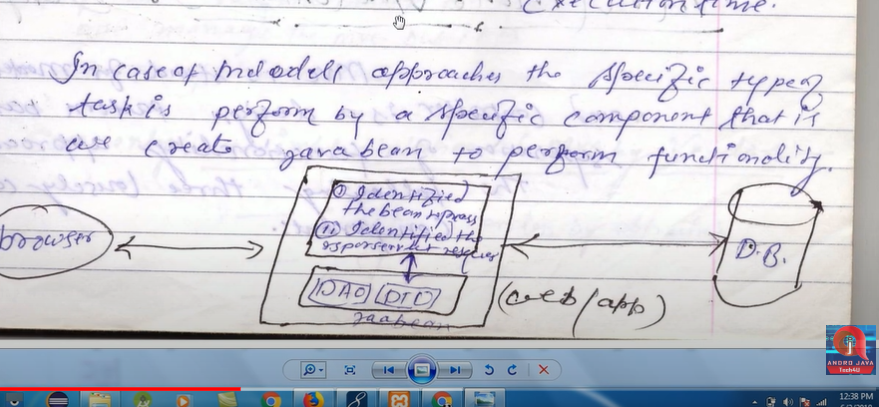 Execution time.
In case of model1 approaches the specific type of
task is perform by a specific component that is
we create javabean to perform functionality.
browser
① Identified
the bean
② Identified the
DAO DTO
javabean
(web/app)
D.B.
ANDRO JAVA
Tech4U
12:38 PM